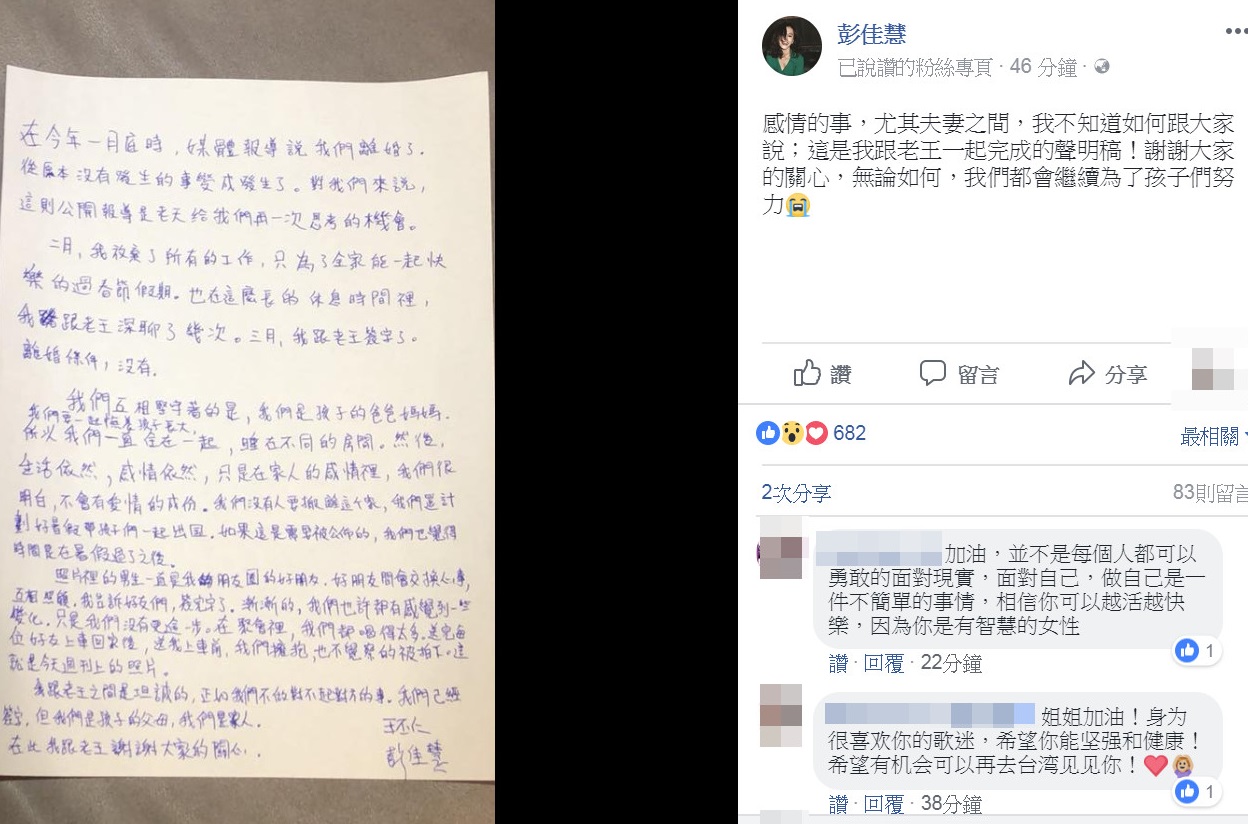 在今年一月底時，媒體報導說我們離婚了．
從原本沒有發生的事變成發生了。對我們來說，
這則公開報導是老天給我們再一次思考的機會。
二月，我放棄了所有的工作，只為了全家能一起快
樂的過春節假期。也在這麼長的休息時間裡，
我跟老王深聊了幾次。三月，我跟老王簽字了。
離婚條件，沒有．
我們互相堅守著的是，我們是孩子的爸爸媽媽．
我們要一起陪著孩子長大，
所以我們一直住在一起，睡在不同的房間。然後，
生活依然，感情依然，只是在家人的感情裡，我們很
明白，不會有愛情的成份。我們沒有人要搬離這个家，我們還計
劃好暑假帶孩子們一起出國．如果這是需要被公佈的，我們也覺得
時間是在暑假過了之後。
照片裡的男生一直是我朋友圈的好朋友．好朋友間會交換心事，
互相照顧．我告訴好友們，簽完字了．漸漸的，我們也許都有感覺到一些
變化．只是我們沒有更進一步。在聚會裡，我們都喝得太多．送完每
位好友上車回家後，送我上車前，我們擁抱，也不覺察的被拍下．這
就是今天週刊上的照片。
我跟老王之間是坦誠的，正如我們不做對不起對方的事．我們已經
簽字，但我們是孩子的父母，我們是家人．
在此我跟老王謝謝大家的關心．
彭佳慧
彭佳慧
已說讚的粉絲專頁 · 46 分鐘 ·
感情的事，尤其夫妻之間，我不知道如何跟大家
說；這是我跟老王一起完成的聲明稿！謝謝大家
的關心，無論如何，我們都會繼續為了孩子們努
力😭
讚 留言 分享
682 最相關
2次分享 83則留言
加油，並不是每個人都可以
勇敢的面對現實，面對自己，做自己是一
件不簡單的事情，相信你可以越活越快
樂，因為你是有智慧的女性
1
讚 · 回覆 · 22分鐘
姐姐加油！身为
很喜欢你的歌迷，希望你能坚强和健康！
希望有机会可以再去台湾见见你！❤️🙆
1
讚 · 回覆 · 38分鐘